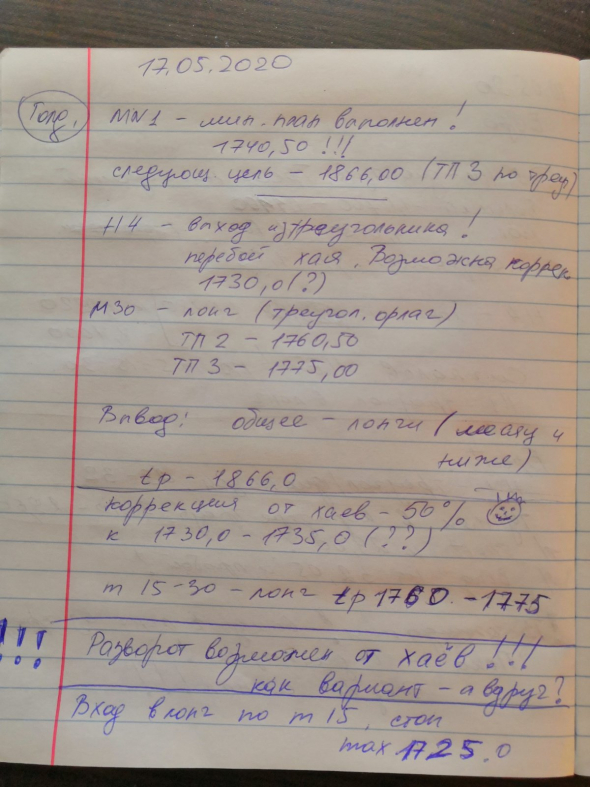 17.05.2020
Голд, MN1 - мин. план выполнен!
1740,50 !!!
следующ. цель - 1866,00 (ТП 3 по треуг)
H4 - выход из треугольника!
перебой хая. Возможна коррек
1730,0 (?)
М30 - лонг (треугол. флаг)
ТП 2 - 1760,50
ТП 3 - 1775,00
Вывод: общее - лонги (
ниже)
tp - 1866,0
коррекция от хаев - 50%
к 1730,0 - 1735,0 (??)
m 15-30 - лонг tp 1760. - 1775
!!! Разворот возможен от хаёв!!!
как вариант - а вдруг?
Вход в лонг по m15, стоп
max 1725.0